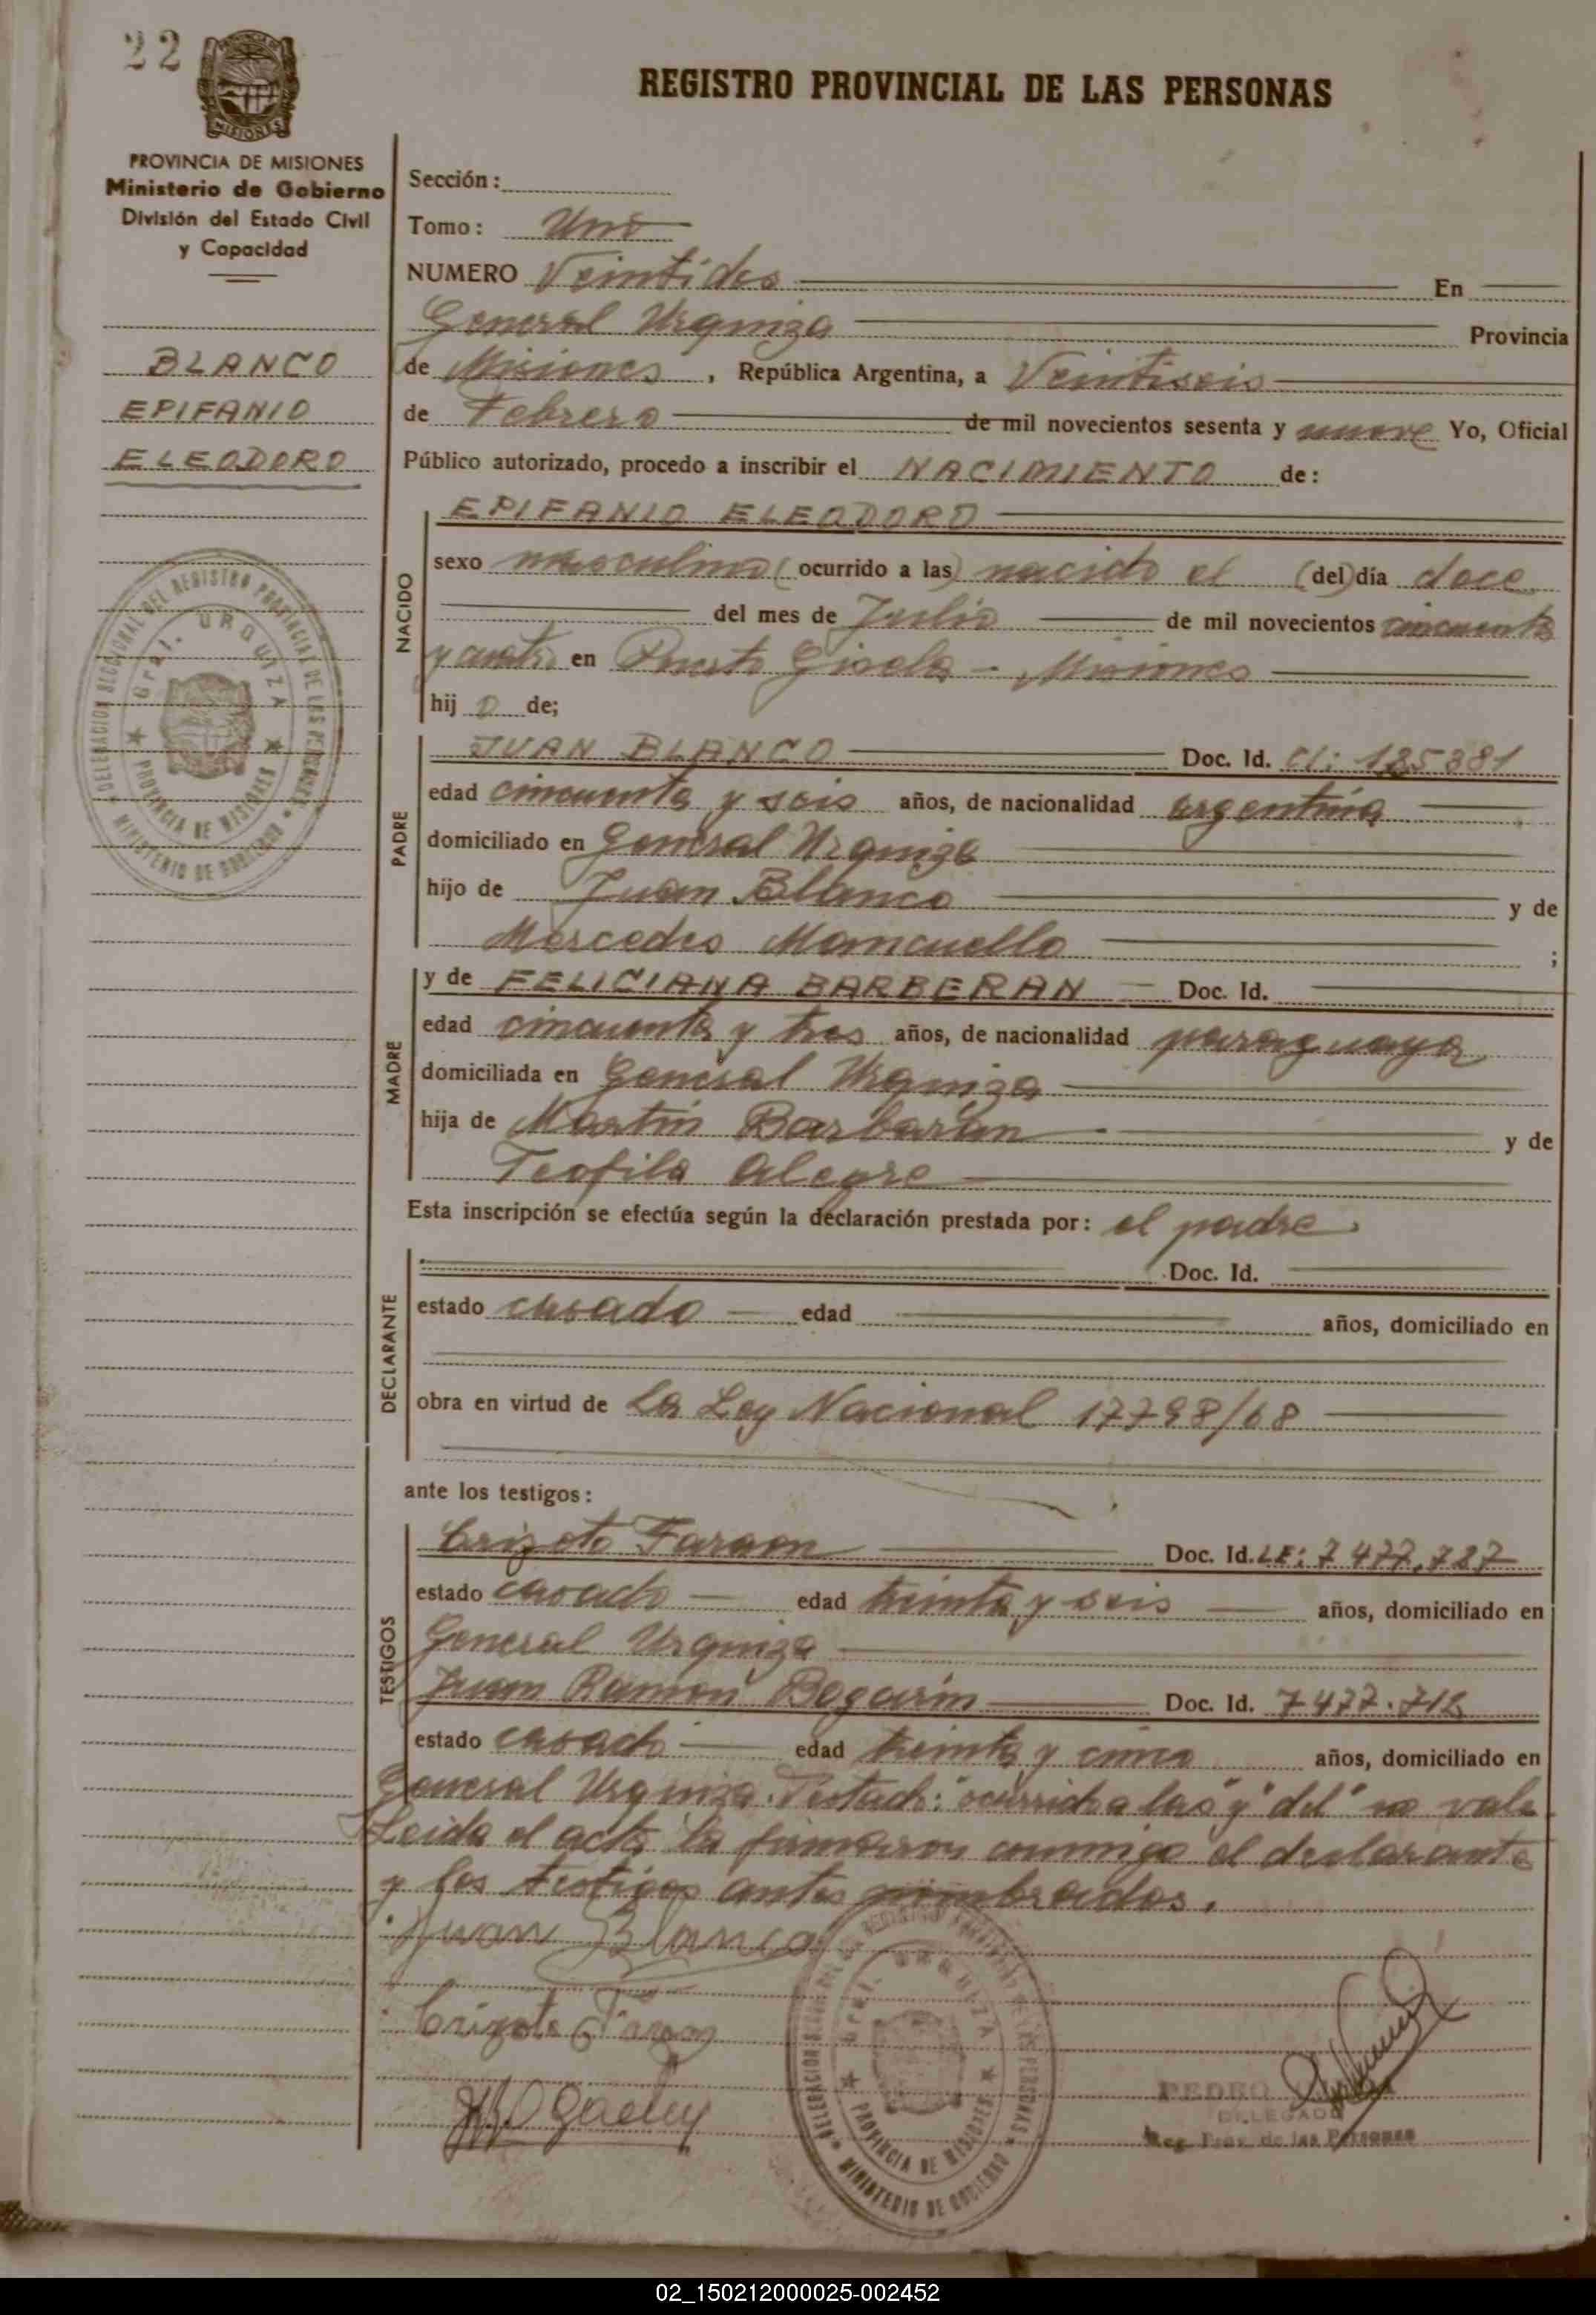 22
MISIONES
PROVINCIA DE MISIONES
Ministerio de Gobierno
División del Estado Civil
y Capacidad
BLANCO
EPIFANIO
ELEODORO
DELEGACION SECCIONAL DEL REGISTRO PROVINCIAL DE LAS PERSONAS
Gral. URQUIZA
PROVINCIA DE MISIONES
MINISTERIO DE GOBIERNO
REGISTRO PROVINCIAL DE LAS PERSONAS
Sección:
Tomo: Uno
NUMERO Veintidos En
General Urquiza Provincia
de Misiones, República Argentina, a Veintiseis
de Febrero de mil novecientos sesenta y nueve Yo, Oficial
Público autorizado, procedo a inscribir el NACIMIENTO de:
NACIDO
EPIFANIO ELEODORO
sexo masculino (ocurrido a las) nacido el (del) día doce
del mes de Julio de mil novecientos cincuenta
y cuatro en Puerto Gisela - Misiones
hij o de;
PADRE
JUAN BLANCO Doc. Id. CI: 125381
edad cincuenta y seis años, de nacionalidad argentina
domiciliado en General Urquiza
hijo de Juan Blanco y de
Mercedes Mancuello ;
MADRE
y de FELICIANA BARBERAN Doc. Id.
edad cincuenta y tres años, de nacionalidad paraguaya
domiciliada en General Urquiza
hija de Martin Barbaran y de
Teofila Alegre
Esta inscripción se efectúa según la declaración prestada por: el padre.
DECLARANTE
Doc. Id.
estado casado edad años, domiciliado en
obra en virtud de la Ley Nacional 17798/68
ante los testigos:
TESTIGOS
Crizoto Faraon Doc. Id. LE: 7 477.787
estado casado edad treinta y seis años, domiciliado en
General Urquiza
Juan Ramon Bogarin Doc. Id. 7477.718
estado casado edad treinta y cinco años, domiciliado en
General Urquiza. Testado: "ocurrido a las" y "del" no vale.
Leida el acta la firmaron conmigo el declarante
y los testigos antes nombrados.
Juan Blanco
Crizoto Faraon
DELEGACION SECCIONAL DEL REGISTRO PROVINCIAL DE LAS PERSONAS
Gral. URQUIZA
PROVINCIA DE MISIONES
MINISTERIO DE GOBIERNO
PEDRO
DELEGADO
Reg. Prov. de las Personas
02_150212000025-002452